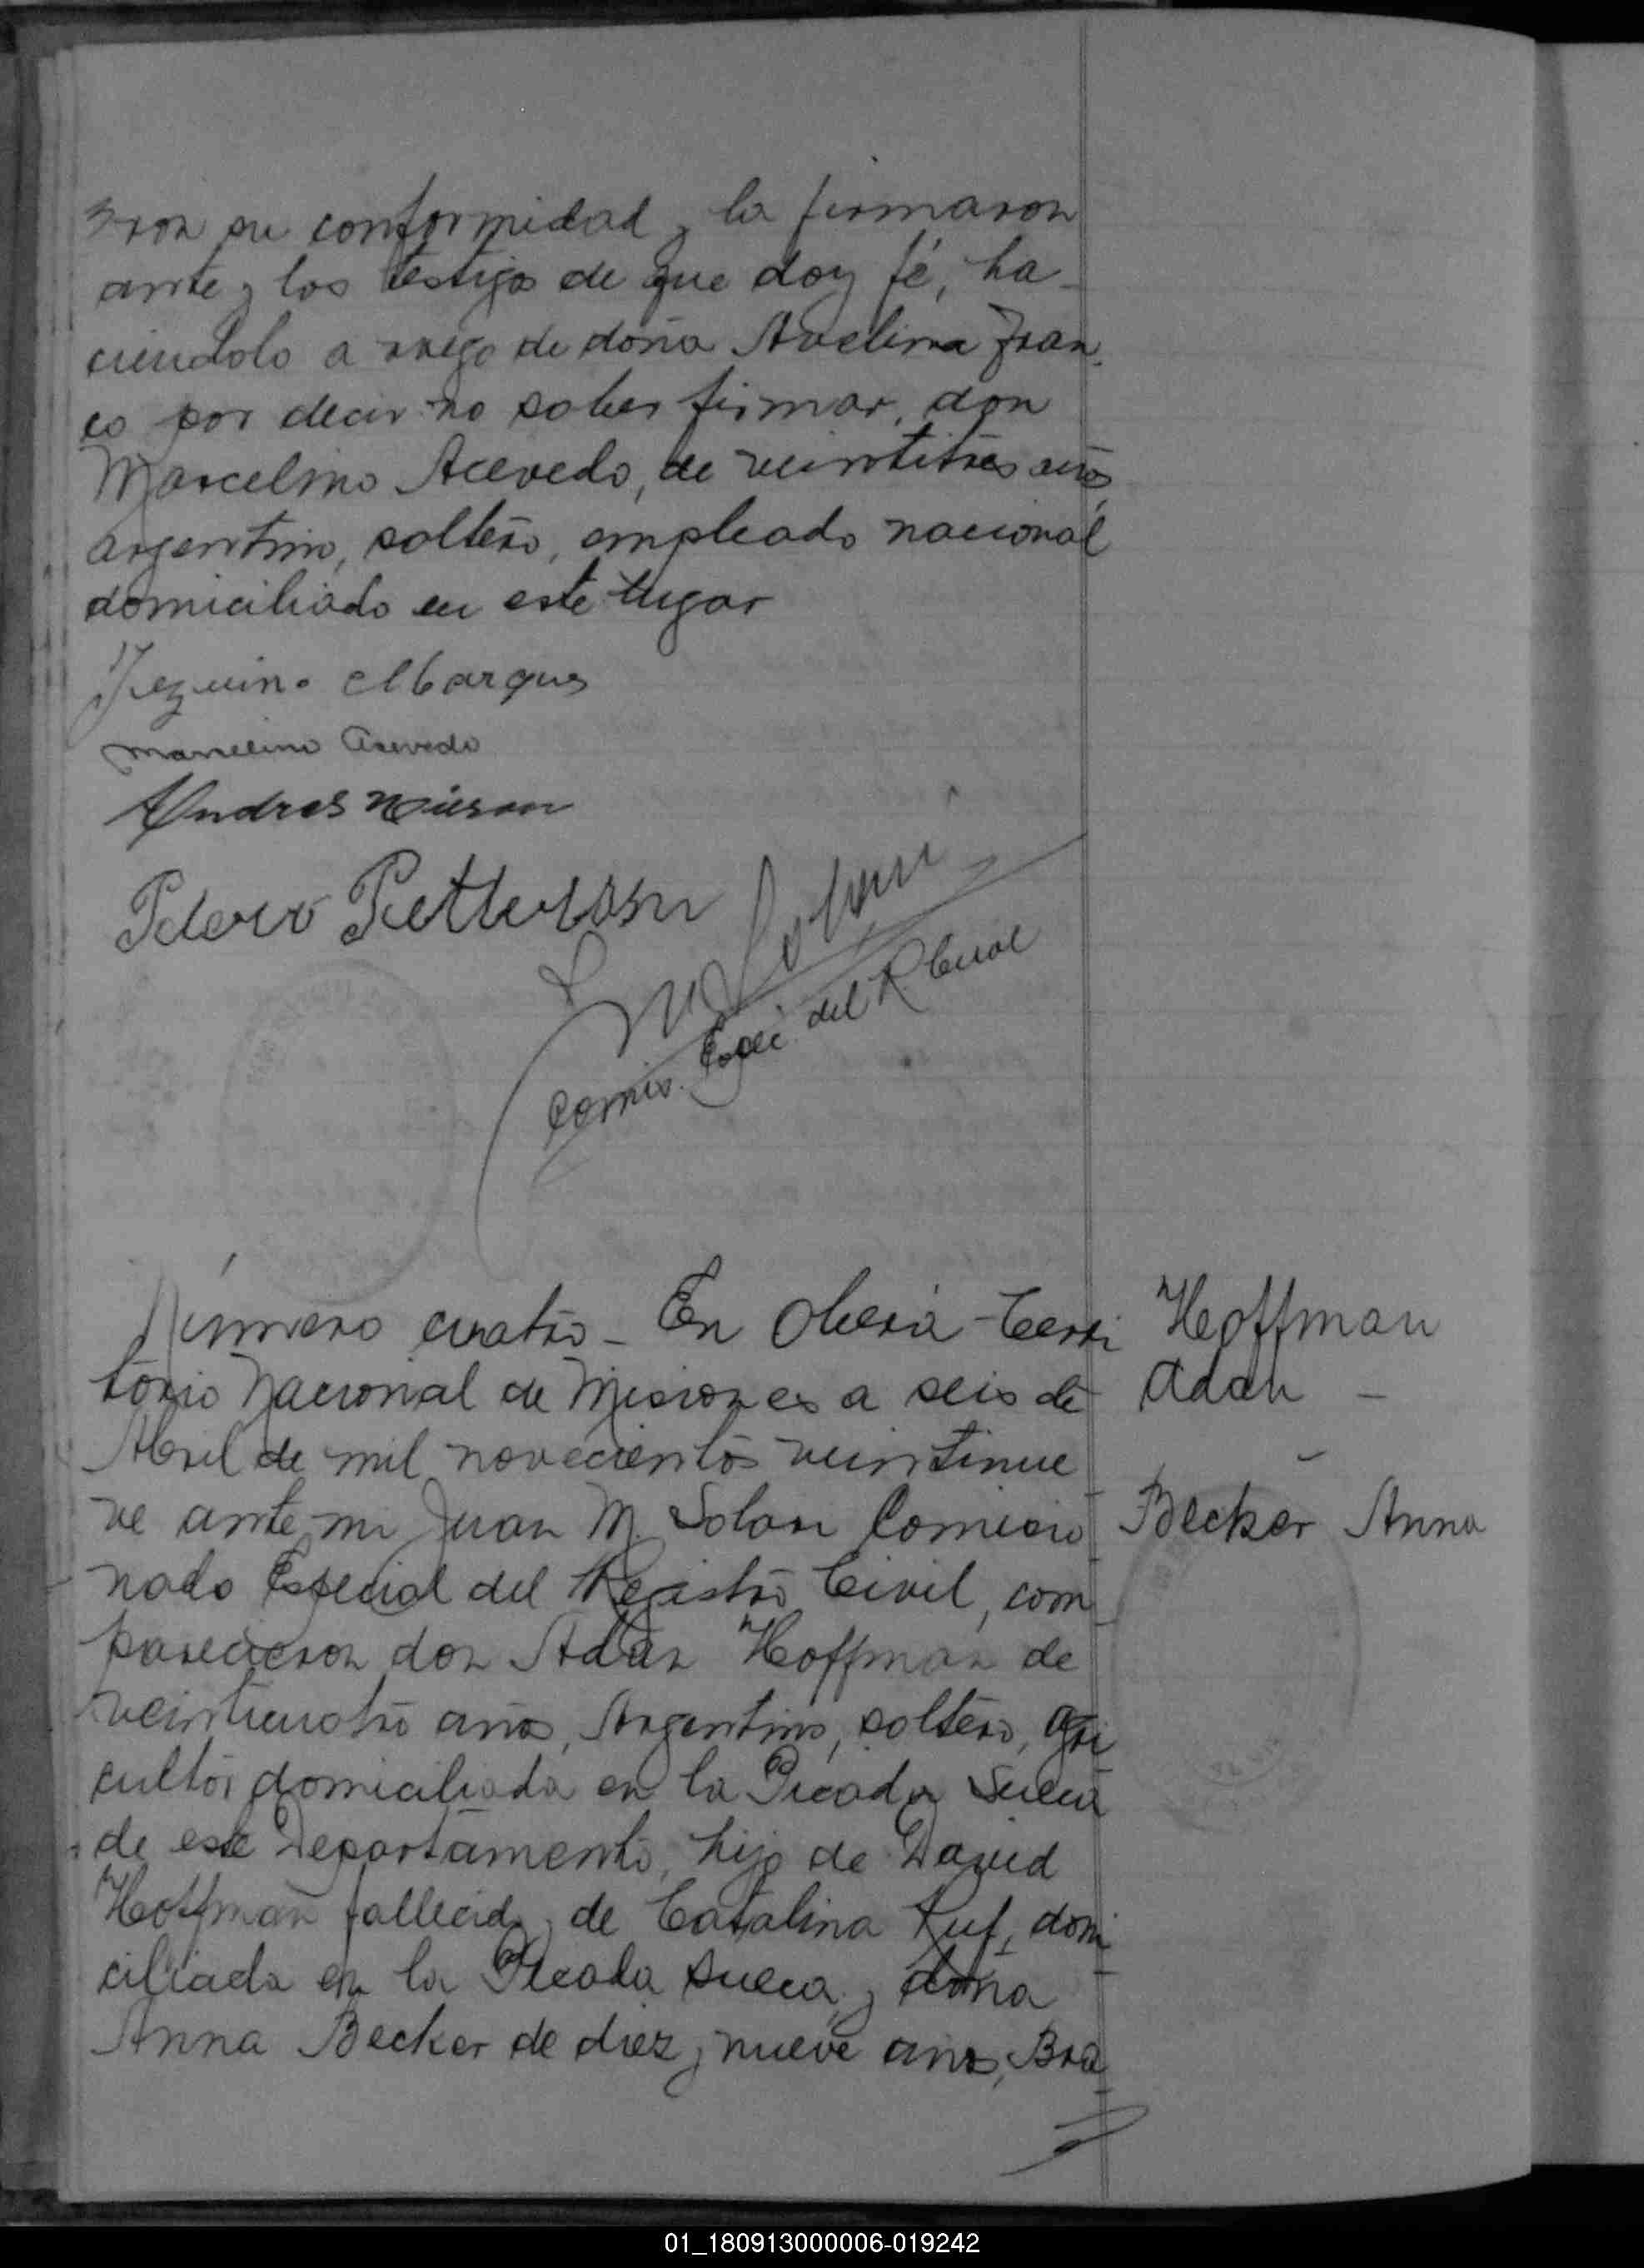 ron su conformidad y la firmaron
ante y los testigos de que doy fé, ha-
ciendolo a ruego de doña Avelina Fran
co por decir no saber firmar, don
Marcelino Acevedo, de veintitres años,
argentino, soltero, empleado nacional
domiciliado en este lugar
Marcelino Acevedo
Andres
Pedro Pettersson
Comis. Espec. del R Civil
Número cuatro - En Oberá - Terri
torio Nacional de Misiones a seis de
Abril de mil novecientos veintinue
ve ante mi Juan M. Solari Comisio
nado Especial del Registro Civil, com
parecieron don Adan Hoffman de
veinticuatro años, Argentino, soltero, agri
cultor domiciliado en la Picada Sueca
de este Departamento, hijo de David
Hoffman fallecido y de Catalina Ruf, domi
ciliada en la Picada Sueca y doña
Anna Becker de diez y nueve años, Bra
Hoffman
Adan -
Becker Anna
01_180913000006-019242